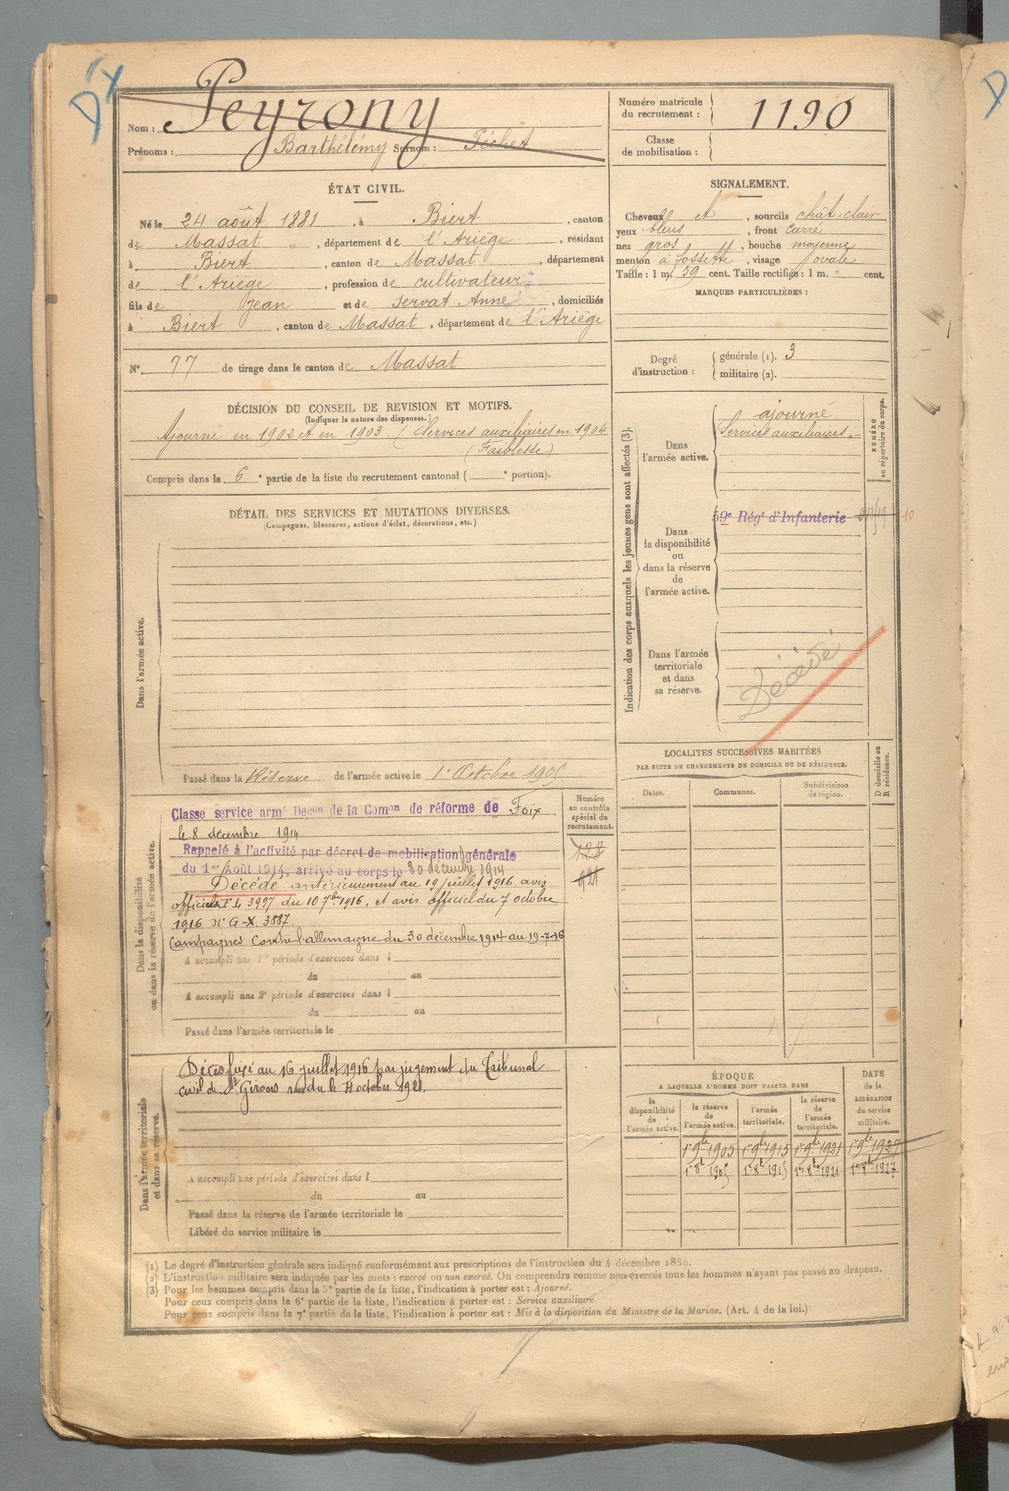 Dx
Nom : Peyrony
Prénoms : Barthélémy Surnom : Péchet
Numéro matricule du recrutement : 1190
Classe de mobilisation :
ÉTAT CIVIL.
Né le 24 août 1881, à Biert, canton
de Massat, département de l'Ariège, résidant
à Biert, canton de Massat, département
de l'Ariège, profession de cultivateur
fils de Jean et de Servat Anne, domiciliés
à Biert, canton de Massat, département de l'Ariège
N° 77 de tirage dans le canton de Massat
SIGNALEMENT.
Cheveux et, sourcils chât. clair
yeux bleus, front carré
nez gros, bouche moyenne
menton à fossette, visage ovale
Taille : 1 m. 59 cent. Taille rectifiée : 1 m. cent.
MARQUES PARTICULIÈRES :
Degré d'instruction : générale (1). 3
militaire (2).
DÉCISION DU CONSEIL DE REVISION ET MOTIFS.
(Indiquer la nature des dispenses.)
Ajourné en 1902 et en 1903 (Services auxiliaires en 1904
(Faiblesse)
Compris dans la 6e partie de la liste du recrutement cantonal ( e portion).
DÉTAIL DES SERVICES ET MUTATIONS DIVERSES.
(Campagnes, blessures, actions d'éclat, décorations, etc.)
Dans l'armée active.
Passé dans la Réserve de l'armée active le 1er Octobre 1905
Indication des corps auxquels les jeunes gens sont affectés (3).
NUMÉRO au répertoire du corps.
Dans l'armée active.
ajourné
Services auxiliaires.
Dans la disponibilité ou dans la réserve de l'armée active.
59e Régt d'Infanterie
10
Dans l'armée territoriale et dans sa réserve.
Décédé
LOCALITÉS SUCCESSIVES HABITÉES
PAR SUITE DE CHANGEMENTS DE DOMICILE OU DE RÉSIDENCE.
Dates.
Communes.
Subdivisions de région.
D domicile ou R résidence.
Numéro au contrôle spécial du recrutement.
Dans la disponibilité ou dans la réserve de l'armée active.
Classé service armé Décon de la Comon de réforme de Foix
le 8 décembre 1914
Rappelé à l'activité par décret de mobilisation générale
du 1er Août 1914, arrivé au corps le 30 décembre 1914
Décédé antérieurement au 19 juillet 1916 avis
officiel F L 3997 du 10 7bre 1916, et avis officiel du 7 octobre
1916 N° G-X. 3887
Campagnes Contre l'allemagne du 30 décembre 1914 au 19-7-16
A accompli une 1re période d'exercices dans l
du au
A accompli une 2e période d'exercices dans l
du au
Passé dans l'armée territoriale le
Dans l'armée territoriale et dans sa réserve.
Décès fixé au 16 juillet 1916 par jugement du Tribunal
civil de St Girons rendu le 4 octobre 1921.
A accompli une période d'exercices dans l
du au
Passé dans la réserve de l'armée territoriale le
Libéré du service militaire le
ÉPOQUE
A LAQUELLE L'HOMME DOIT PASSER DANS
la disponibilité de l'armée active.
la réserve de l'armée active.
l'armée territoriale.
la réserve de l'armée territoriale.
DATE de la LIBÉRATION du service militaire.
1er 9bre 1905 1er 9bre 1915 1er 9bre 1921 1er 9bre 1927
1er 8bre 1905 1er 8bre 1915 1er 8bre 1921 1er 8bre 1927
(1) Le degré d'instruction générale sera indiqué conformément aux prescriptions de l'instruction du 4 décembre 1889.
(2) L'instruction militaire sera indiquée par les mots : exercé ou non exercé. On comprendra comme non exercés tous les hommes n'ayant pas passé au drapeau.
(3) Pour les hommes compris dans la 5e partie de la liste, l'indication à porter est : Ajourné.
Pour ceux compris dans la 6e partie de la liste, l'indication à porter est : Service auxiliaire.
Pour ceux compris dans la 7e partie de la liste, l'indication à porter est : Mis à la disposition du Ministre de la Marine. (Art. 4 de la loi.)